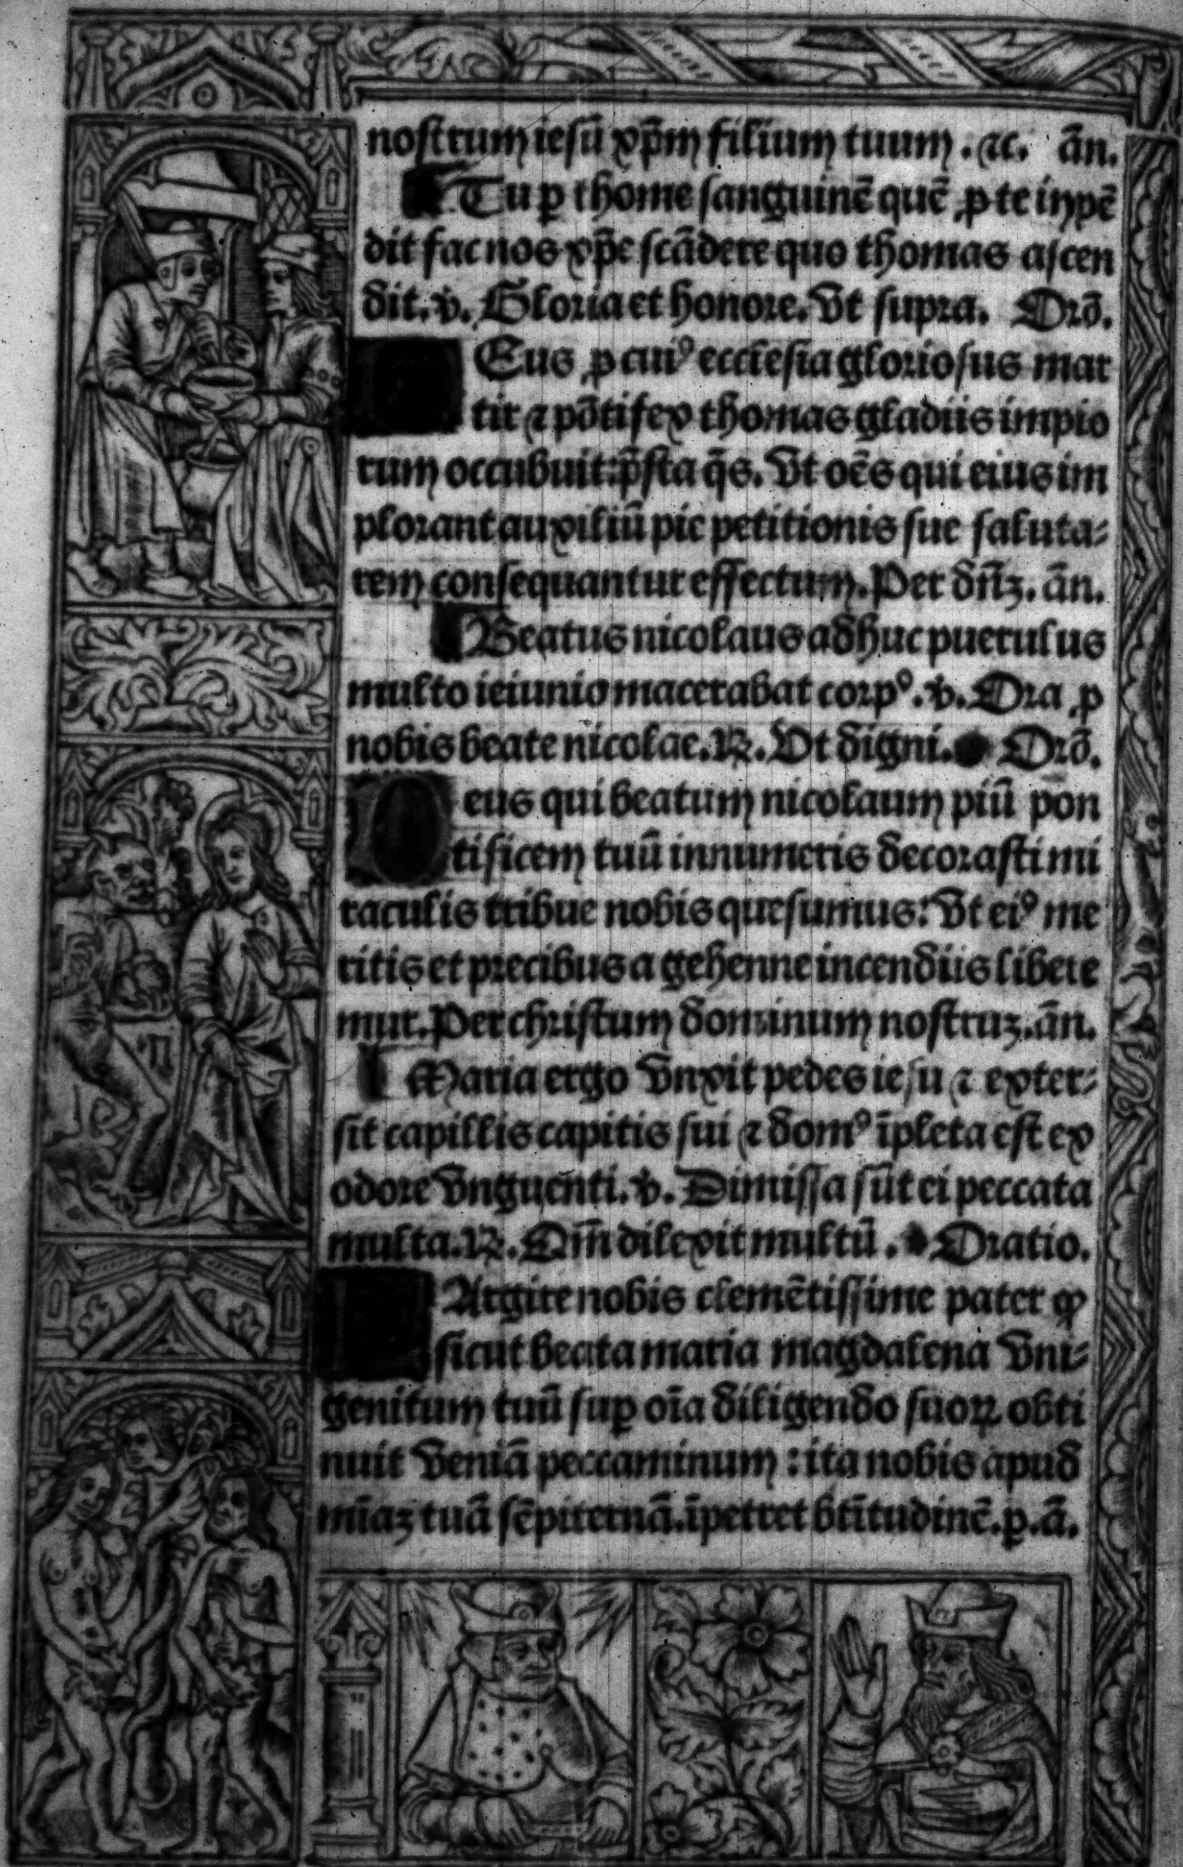 nostrum iesū xp̄m filium tuum. ⁊c. ān.
Tu ꝑ thome sanguinē quē ꝓ te inpē
dit fac nos xp̄e scādere quo thomas ascen
dit. v̇. Gloria et honore. Vt supra. Orō.
Eus ꝓ cuiꝰ ecclesia gloriosus mar
tir ⁊ pōtifex thomas gladiis impio
rum occubuit: p̄sta q̄s. Vt oēs qui eius im
plorant auxiliū pie petitionis sue saluta-
rem consequantur effectum. Per dn̄ꝫ. ān.
Beatus nicolaus adhuc puerulus
multo ieiunio macerabat corpꝰ. v̇. Ora ꝓ
nobis beate nicolae. ℟. Vt digni. Orō.
Deus qui beatum nicolaum piū pon
tificem tuū innumeris decorasti mi
raculis tribue nobis quesumus: Vt eiꝰ me
ritis et precibus a gehenne incendiis libere
mur. Per christum dominum nostruꝫ. ān.
Maria ergo Vnxit pedes iesu ⁊ exter-
sit capillis capitis sui ⁊ domꝰ īpleta est ex
odore Vnguenti. v̇. Dimissa sūt ei peccata
multa. ℟. Qm̄ dilexit multū. Oratio.
Argire nobis clemētissime pater ꝙ
sicut beata maria magdalena Vni-
genitum tuū suꝑ oīa diligendo suoꝝ obti
nuit Veniā peccaminum: ita nobis apud
mīaꝫ tuā sēpiternā. īpetret btītudinē. ꝑ. ā.